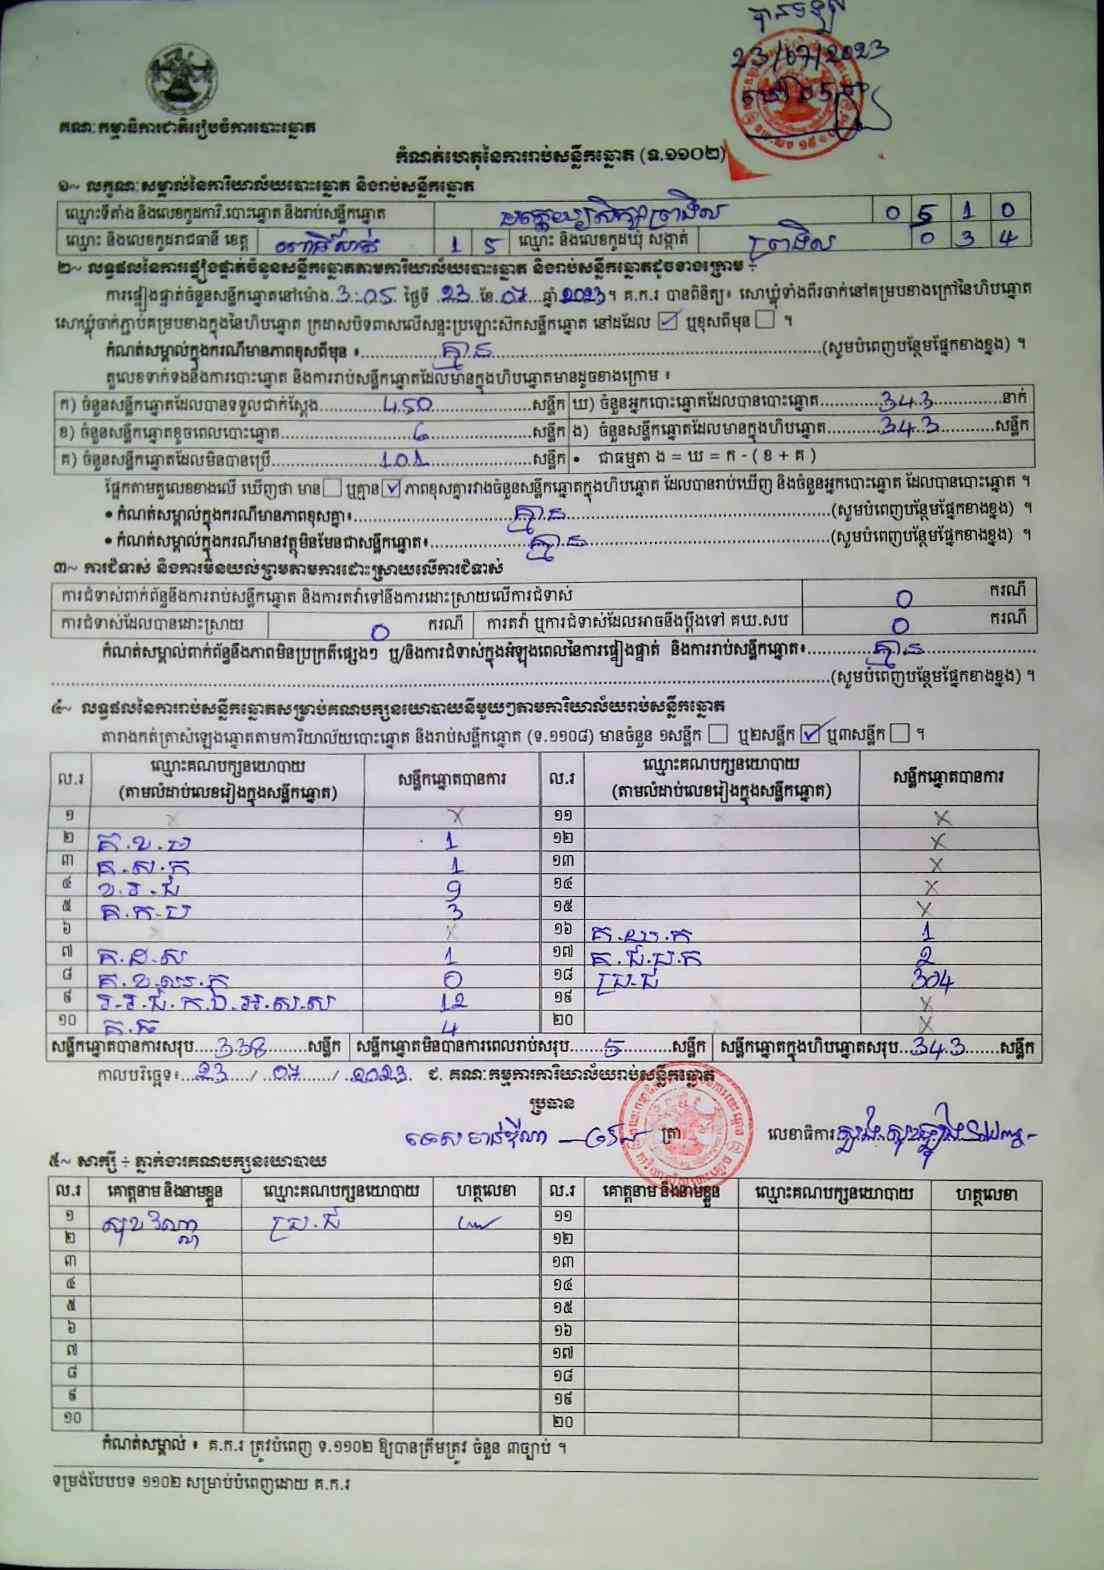 បានចម្លង
23/07/2023
គណៈកម្មាធិការជាតិរៀបចំការបោះឆ្នោត
កំណត់ហេតុនៃការរាប់សន្លឹកឆ្នោត (ទ.១១០២)
១~ លក្ខណៈសម្គាល់នៃការិយាល័យបោះឆ្នោត និងរាប់សន្លឹកឆ្នោត
ឈ្មោះទីតាំង និងលេខកូដការិ.បោះឆ្នោត និងរាប់សន្លឹកឆ្នោត 0 5 1 0
ឈ្មោះ និងលេខកូដរាជធានី ខេត្ត ពោធិ៍សាត់ 1 5 ឈ្មោះ និងលេខកូដឃុំ សង្កាត់ ព្រងិល 0 3 4
២~ លទ្ធផលនៃការផ្ទៀងផ្ទាត់ចំនួនសន្លឹកឆ្នោតតាមការិយាល័យបោះឆ្នោត និងរាប់សន្លឹកឆ្នោតដូចខាងក្រោម ៖
ការផ្ទៀងផ្ទាត់ចំនួនសន្លឹកឆ្នោតនៅម៉ោង.3:05 ថ្ងៃទី .23..ខែ.07....ឆ្នាំ.2023។ គ.ក.រ បានពិនិត្យ៖ សោឃ្លុំទាំងពីរចាក់នៅគម្របខាងក្រៅនៃហិបឆ្នោត
សោឃ្លុំចាក់ភ្ជាប់គម្របខាងក្នុងនៃហិបឆ្នោត ក្រដាសបិទពាសលើសន្ទះប្រឡោះសឹកសន្លឹកឆ្នោត នៅដដែល ☑ ឬខុសពីមុន ☐ ។
កំណត់សម្គាល់ក្នុងករណីមានភាពខុសពីមុន ៖........គ្មាន........(សូមបំពេញបន្ថែមផ្នែកខាងខ្នង) ។
តួលេខទាក់ទងនឹងការបោះឆ្នោត និងការរាប់សន្លឹកឆ្នោតដែលមានក្នុងហិបឆ្នោតមានដូចខាងក្រោម ៖
ក) ចំនួនសន្លឹកឆ្នោតដែលបានទទួលជាក់ស្តែង........450........សន្លឹក ឃ) ចំនួនអ្នកបោះឆ្នោតដែលបានបោះឆ្នោត........343........នាក់
ខ) ចំនួនសន្លឹកឆ្នោតខូចពេលបោះឆ្នោត........6........សន្លឹក ង) ចំនួនសន្លឹកឆ្នោតដែលមានក្នុងហិបឆ្នោត........343........សន្លឹក
គ) ចំនួនសន្លឹកឆ្នោតដែលមិនបានប្រើ........101........សន្លឹក • ជាធម្មតា ង = ឃ = ក - ( ខ + គ )
ផ្អែកតាមតួលេខខាងលើ ឃើញថា មាន ☐ ឬគ្មាន ☑ ភាពខុសគ្នារវាងចំនួនសន្លឹកឆ្នោតក្នុងហិបឆ្នោត ដែលបានរាប់ឃើញ និងចំនួនអ្នកបោះឆ្នោត ដែលបានបោះឆ្នោត ។
• កំណត់សម្គាល់ក្នុងករណីមានភាពខុសគ្នា៖........គ្មាន........(សូមបំពេញបន្ថែមផ្នែកខាងខ្នង) ។
• កំណត់សម្គាល់ក្នុងករណីមានវត្ថុមិនមែនជាសន្លឹកឆ្នោត៖........គ្មាន........(សូមបំពេញបន្ថែមផ្នែកខាងខ្នង) ។
៣~ ការជំទាស់ និងការមិនយល់ព្រមតាមការដោះស្រាយលើការជំទាស់
ការជំទាស់ពាក់ព័ន្ធនឹងការរាប់សន្លឹកឆ្នោត និងការតវ៉ាទៅនឹងការដោះស្រាយលើការជំទាស់ 0 ករណី
ការជំទាស់ដែលបានដោះស្រាយ 0 ករណី ការតវ៉ា ឬការជំទាស់ដែលអាចនឹងប្តឹងទៅ គឃ.សប 0 ករណី
កំណត់សម្គាល់ពាក់ព័ន្ធនឹងភាពមិនប្រក្រតីផ្សេងៗ ឬ/និងការជំទាស់ក្នុងអំឡុងពេលនៃការផ្ទៀងផ្ទាត់ និងការរាប់សន្លឹកឆ្នោត៖........គ្មាន........
........(សូមបំពេញបន្ថែមផ្នែកខាងខ្នង) ។
៤~ លទ្ធផលនៃការរាប់សន្លឹកឆ្នោតសម្រាប់គណបក្សនយោបាយនីមួយៗតាមការិយាល័យរាប់សន្លឹកឆ្នោត
តារាងកត់ត្រាសំឡេងឆ្នោតតាមការិយាល័យបោះឆ្នោត និងរាប់សន្លឹកឆ្នោត (ទ.១១០៨) មានចំនួន ១សន្លឹក ☐ ឬ២សន្លឹក ☑ ឬ៣សន្លឹក ☐ ។
ល.រ ឈ្មោះគណបក្សនយោបាយ (តាមលំដាប់លេខរៀងក្នុងសន្លឹកឆ្នោត) សន្លឹកឆ្នោតបានការ ល.រ ឈ្មោះគណបក្សនយោបាយ (តាមលំដាប់លេខរៀងក្នុងសន្លឹកឆ្នោត) សន្លឹកឆ្នោតបានការ
១ x x ១១ x
២ គ.ខ.ប 1 ១២ x
៣ គ.ស.ក 1 ១៣ x
៤ ខ.រ.ជ 9 ១៤ x
៥ គ.ក.ប 3 ១៥ x
៦ x x ១៦ គ.ឃ.ក 1
៧ គ.ដ.ស 1 ១៧ គ.ជ.ប.ក 2
៨ គ.ខ.ឈ.ក 0 ១៨ ប្រ.ជ 304
៩ រ.រ.ជ.ក.ឯ.អ.ស.ស 12 ១៩ x
១០ គ.ធ 4 ២០ x
សន្លឹកឆ្នោតបានការសរុប....338........សន្លឹក សន្លឹកឆ្នោតមិនបានការពេលរាប់សរុប........5........សន្លឹក សន្លឹកឆ្នោតក្នុងហិបឆ្នោតសរុប..343.......សន្លឹក
កាលបរិច្ឆេទ៖...23..../..07......./..2023. ជ. គណៈកម្មការការិយាល័យរាប់សន្លឹកឆ្នោត
ប្រធាន
ត្រា លេខាធិការ
៥~ សាក្សី ÷ ភ្នាក់ងារគណបក្សនយោបាយ
ល.រ គោត្តនាម និងនាមខ្លួន ឈ្មោះគណបក្សនយោបាយ ហត្ថលេខា ល.រ គោត្តនាម និងនាមខ្លួន ឈ្មោះគណបក្សនយោបាយ ហត្ថលេខា
១ សុខ វិណ្ណា ប្រ.ជ ១១
២ ១២
៣ ១៣
៤ ១៤
៥ ១៥
៦ ១៦
៧ ១៧
៨ ១៨
៩ ១៩
១០ ២០
កំណត់សម្គាល់ ៖ គ.ក.រ ត្រូវបំពេញ ទ.១១០២ ឱ្យបានត្រឹមត្រូវ ចំនួន ៣ច្បាប់ ។
ទម្រង់បែបបទ ១១០២ សម្រាប់បំពេញដោយ គ.ក.រ